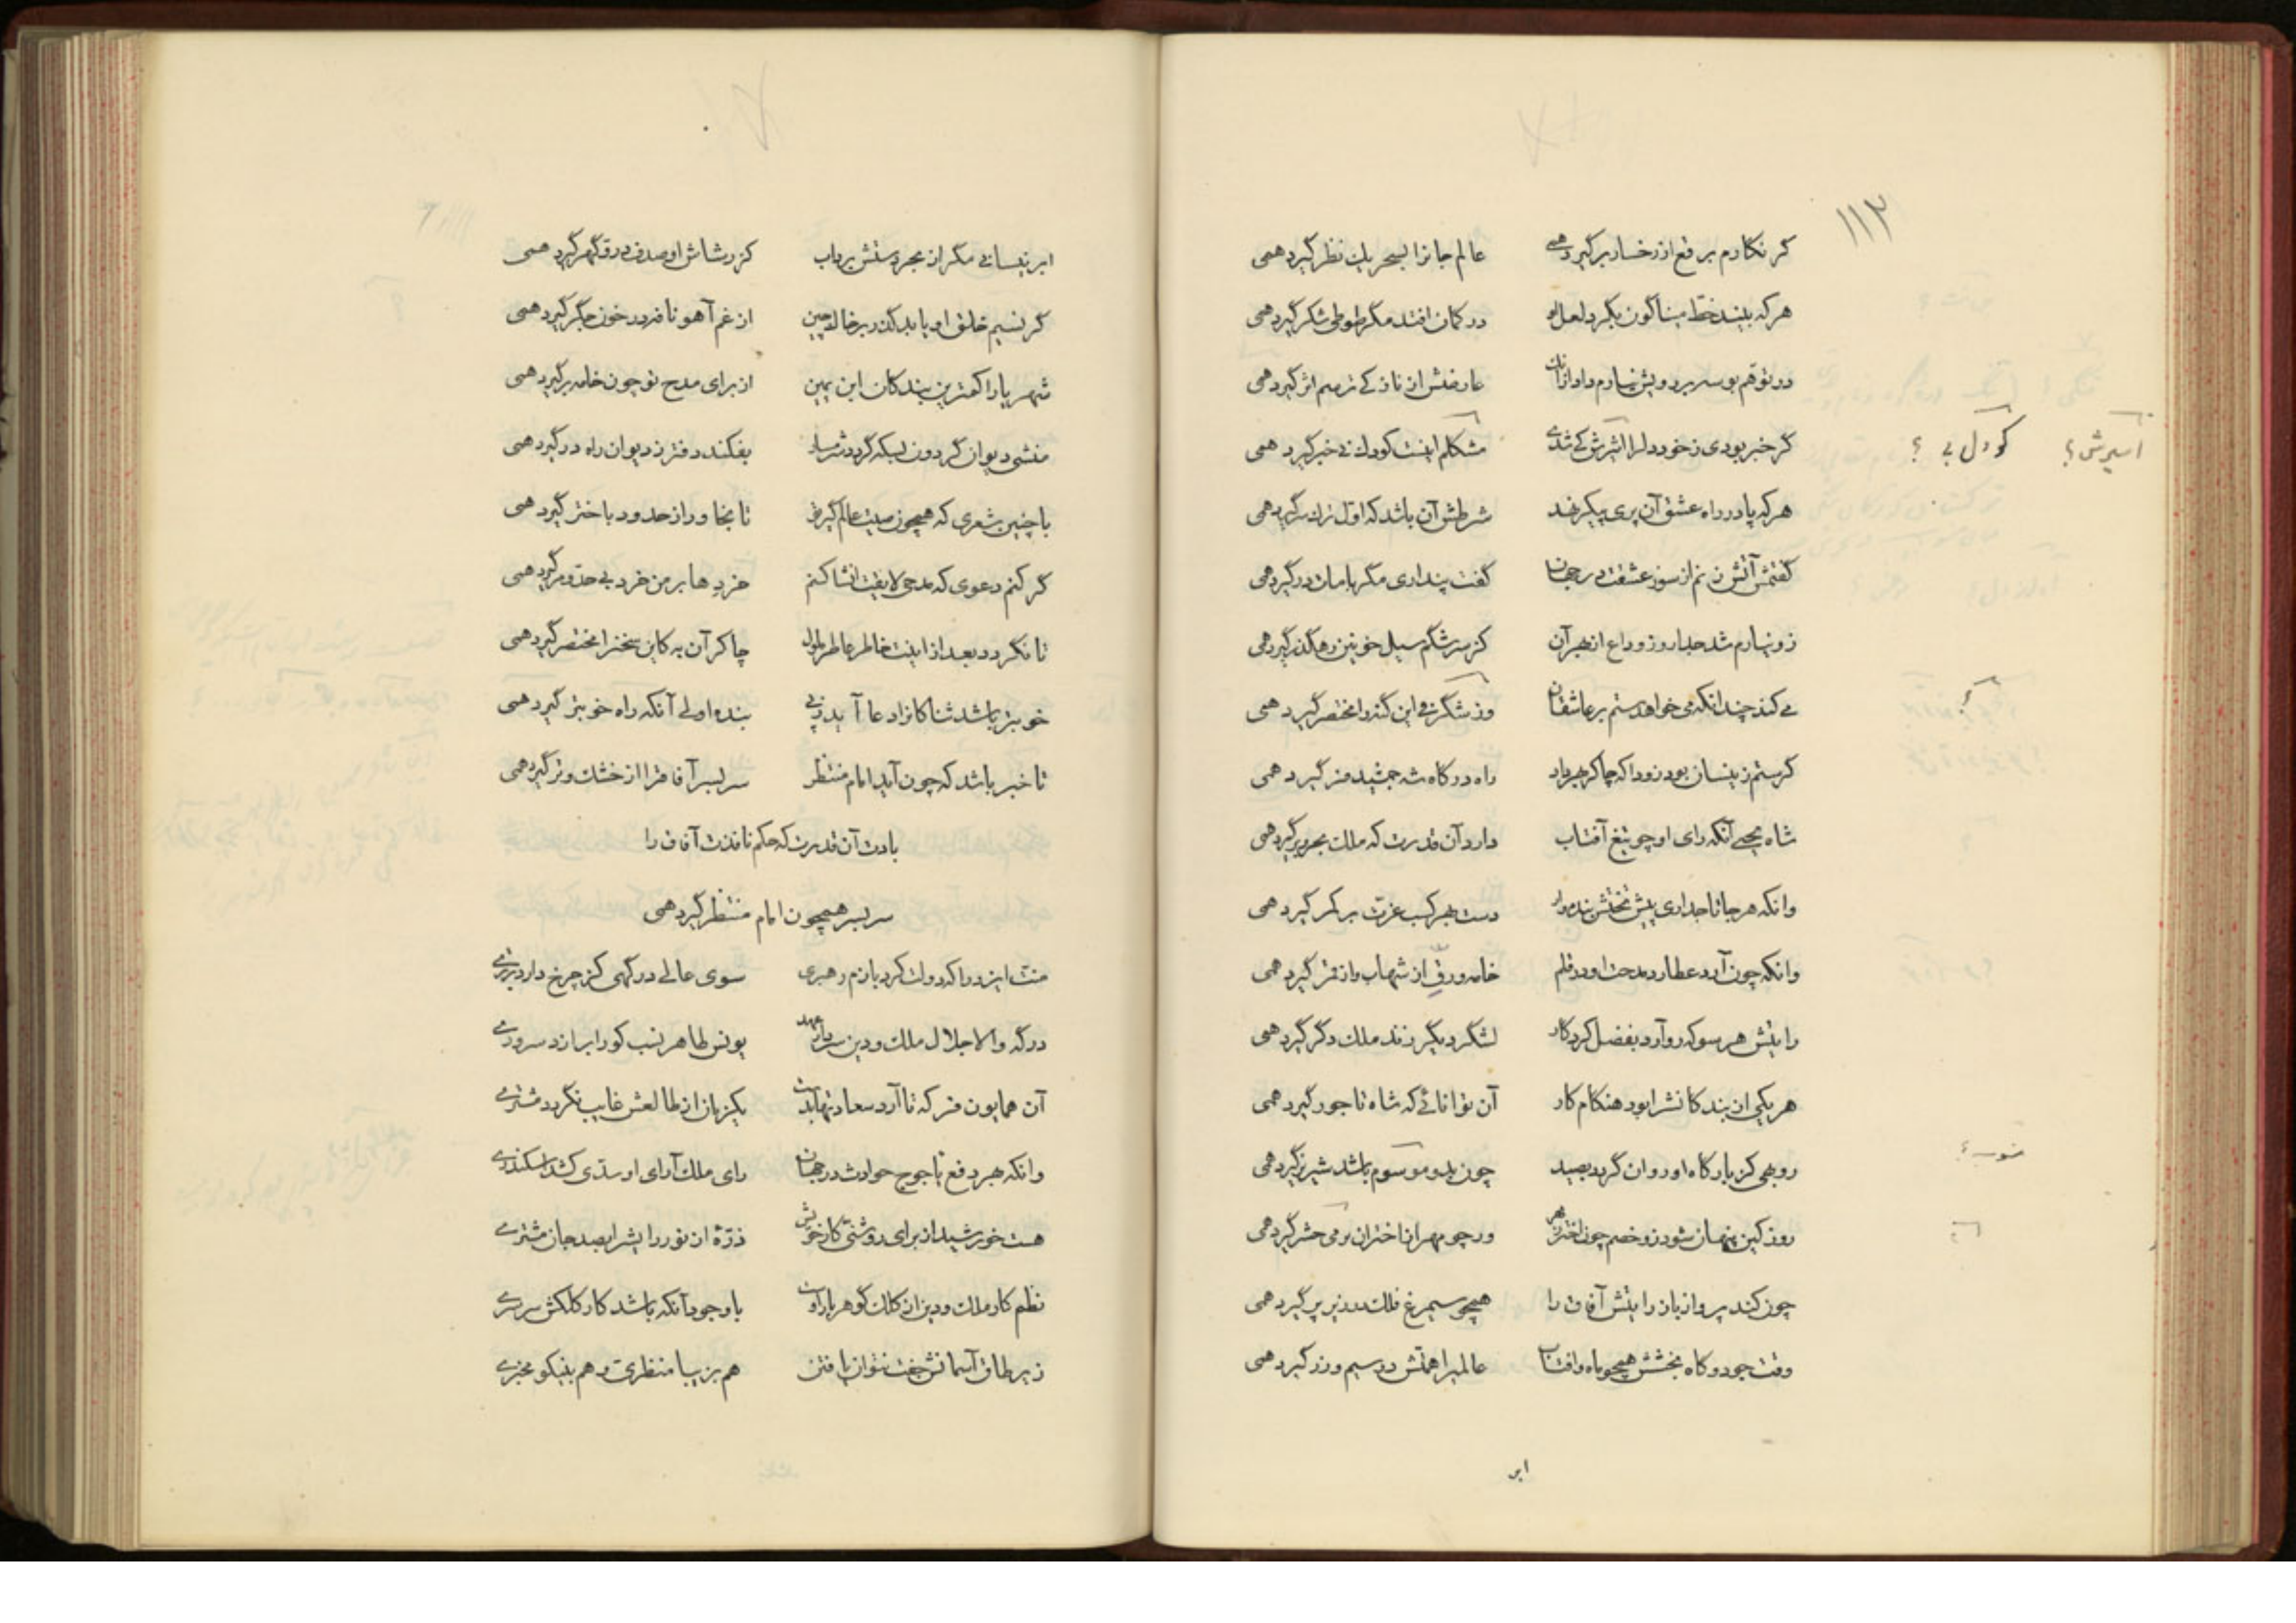 ۱۱۳
گر نگارم برقع از رخسار برگیرد همی عالم جانرا بسحر یک نظر گیرد همی
هرکه بیند خط میناگون بگرد لعل او در گمان افتد مگر طوطی شکر گیرد همی
عارضش از نازکی ترسم اثر گیرد همی
گر خبر بودی ز خود دلرا اثرش کی شدی مشکلم اینست کودل بی خبر گیرد همی
اسیرش؟ کو دل بی ؟
هرکه پا در راه عشق آن پری پیکر نهد شرطش آن باشد که اول ترک سر گیرد همی
گفتمش آتش زنم از سوز عشقت در جهان گفت پنداری مگر با مات درگیرد همی
زو نیارم شد جدا روز وداع از بهر آن کز سرشگم سیل خونین رهگذر گیرد همی
می کند چندانکه می خواهد ستم بر عاشقان این گنه را مختصر گیرد همی
گر ستم زینسان بود زودا که چاکر راه درگاه شه جمشید فر گیرد همی
شاه یحیی آنکه رای او چو تیغ آفتاب دارد آن قدرت که ملک بحر و بر گیرد همی
وانکه هر جا تاجداری پیش تختش بنده‌وار دست بهر کسب عزت بر کمر گیرد همی
وانکه چون آرد عطارد مدحت او در قلم خامه ورق از شهاب و از قمر گیرد همی
رایتش هر سو که رو آرد بفضل کردگار لشگر دیگر زند ملک دگر گیرد همی
هر یکی از بندگانشرا بود هنگام کار آن توانائی که شاه تاجور گیرد همی
روبهی کز بارگاه او روان گردد بصید چون بدو موسوم باشد شیر نر گیرد همی
منسوب؟
روز کین پنهان شود زو خصم چون اختر ز مهر ور چو مهر از اختران بر می حشر گیرد همی
چون کند پرواز باز رایتش آفاق را همچو سیمرغ فلک در زیر پر گیرد همی
وقت جود و گاه بخشش همچو ماه و آفتاب عالمیرا همتش در سیم و زر گیرد همی
ابر
ابر نیسانی مگر از بحر دستش برد آب کز رشاش او صدف در و گهر گیرد همی
گر نسیم خلق او یابد گذر بر خاک چین از غم آهو نافه در خون جگر گیرد همی
شهریارا کمترین بندگان ابن یمین از برای مدح تو چون خامه برگیرد همی
منشی دیوان گردون بسکه گردد شرمسار بفکند دفتر ز دیوان راه در گیرد همی
با چنین شعری که همچون صیت عالم گیر تو تا بخاور از حدود باختر گیرد همی
گر کنم دعوی که مدحی لایقت انشا کنم خردها بر من خرد بی حد و مر گیرد همی
تا نگردد بعد از اینت خاطر عاطر ملول چاکر آن به کاین سخنرا مختصر گیرد همی
خوبتر باشد ثنا کانرا دعا آید ز پی بنده اولی آنکه راه خوبتر گیرد همی
تا خبر باشد که چون آید امام منتظر سربسر آفاقرا از خشک و تر گیرد همی
بادت آن قدرت که حکم نافذت آفاق را
سربسر همچون امام منتظر گیرد همی
منت ایزد را که دولت کرد بازم رهبری سوی عالی درگهی کز چرخ دارد برتری
درگه والا جلال ملک و دین یونس طاهر نسب کو را برازد سروری
آن همایون فر که تا آرد سعادتها بدست یکزمان از طالعش غایب نگردد مشتری
وانکه بهر دفع یاجوج حوادث در جهان رای ملک آرای او سدی کشد اسکندری
هست خورشید از برای روشنی کار خویش ذرهٔ از نور رایشرا بصد جان مشتری
نظم کار ملک و دین از کلک گوهر بار اوست با وجود آنکه باشد کار کلکش سرسری
زیر طاق آسمانش جفت نتوان یافتن هم بزیبا منظری و هم بنیکو مخبری